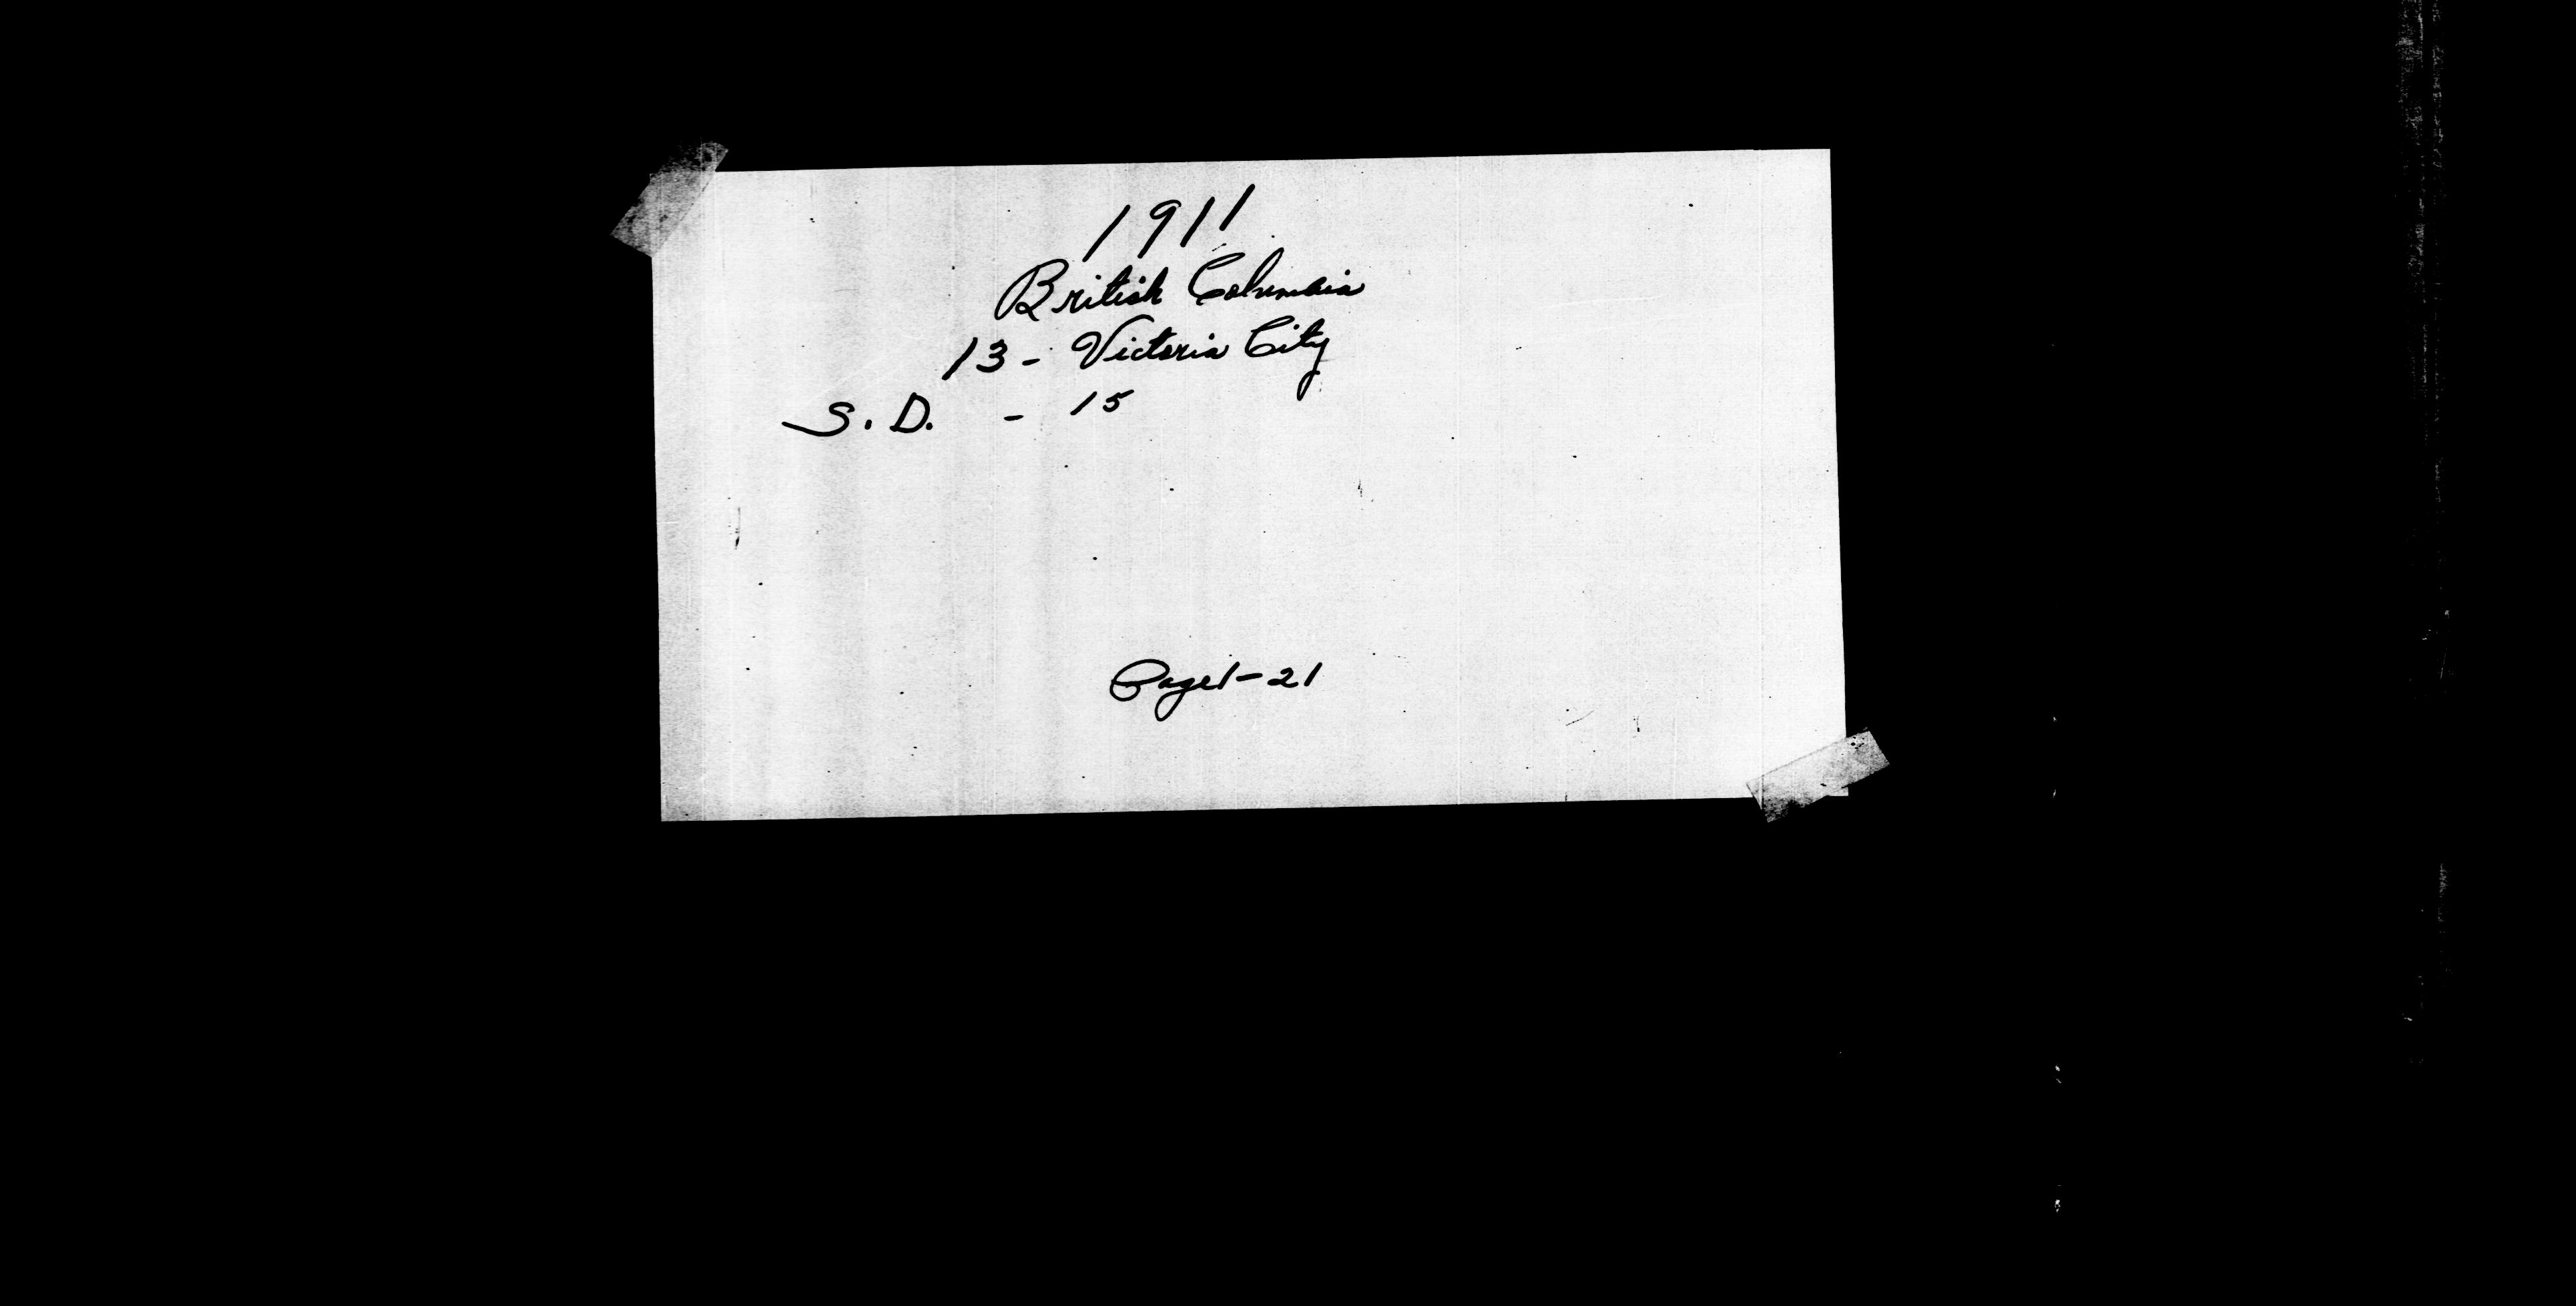 1911
British Columbia
13 - Victoria City
S. D. - 15
Page 1-21